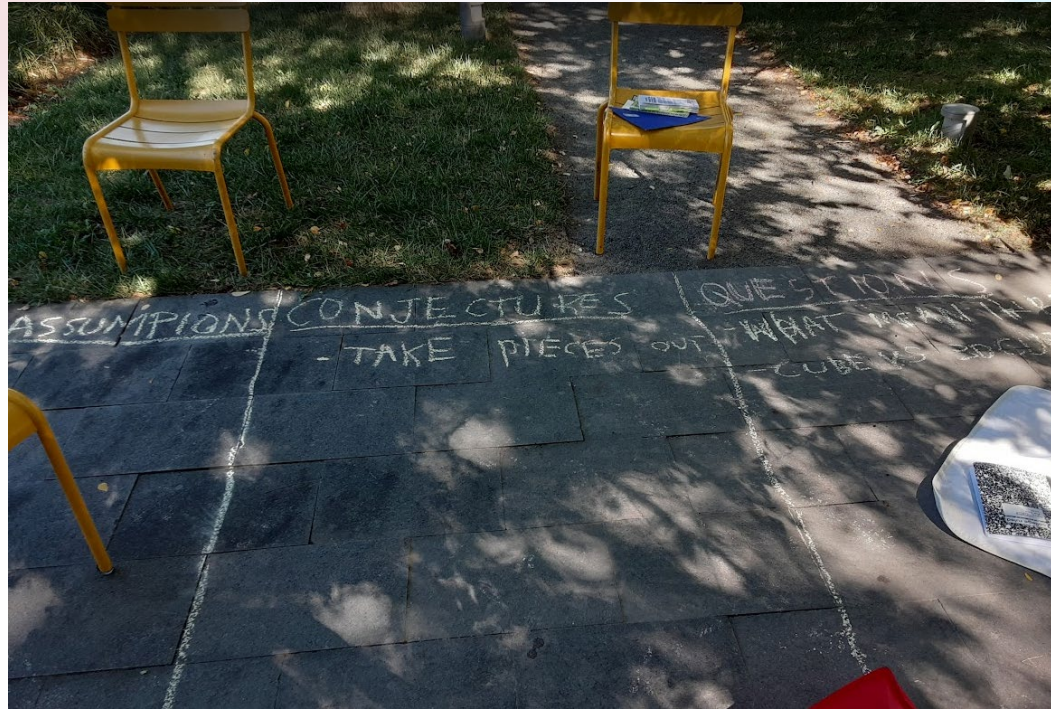 ASSUMPIONS
CONJECTURES
- TAKE PIECES OUT
QUESTIONS
- WHAT MEAN
- CUBE VS